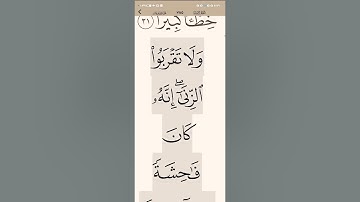 خِطْـًٔا كَبِيرًا ﴿٣١﴾
وَلَا تَقْرَبُوا۟
ٱلزِّنَىٰٓ ۖ إِنَّهُۥ
كَانَ
فَـٰحِشَةً